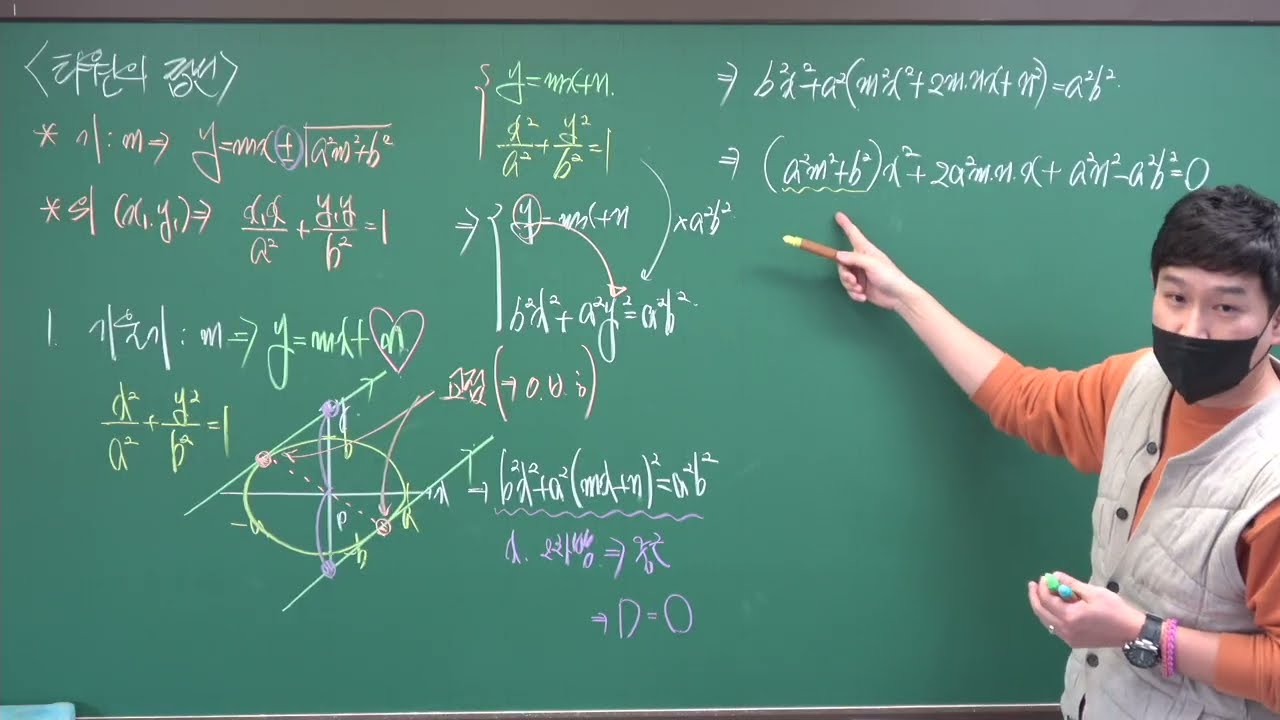 <타원의 접선>
* 기:m ⇒ y=mx±√(a²m²+b²)
* 외 (x₁,y₁) ⇒ x₁x/a² + y₁y/b² = 1
1. 기울기 : m ⇒ y=mx+n
x²/a² + y²/b² = 1
y
b
-a
a
x
b
y=mx+n.
x²/a² + y²/b² = 1
×a²b².
⇒ y=mx+n
b²x²+a²y²=a²b².
→ b²x²+a²(mx+n)²=a²b²
⇒ D=0
⇒ b²x²+a²(m²x²+2m.n.x+n²)=a²b².
⇒ (a²m²+b²)x²+2a²m.n.x+a²n²-a²b²=0